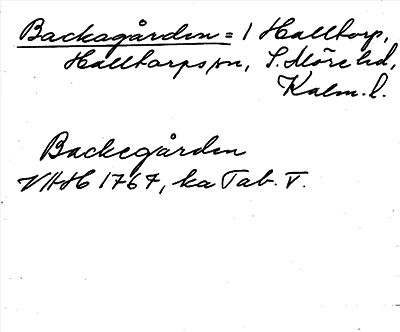 Backagården = 1 Halltorp,
Halltorps sn, S. Möre hd,
Kalm. l.
Backegården
VHH 1767, ka Tab. V.